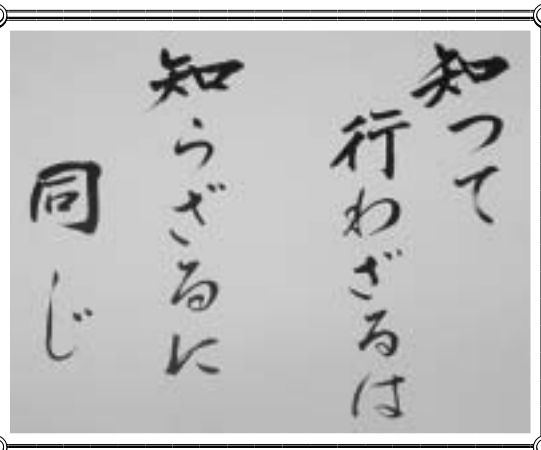 知つて
行わざるは
知らざるに
同じ